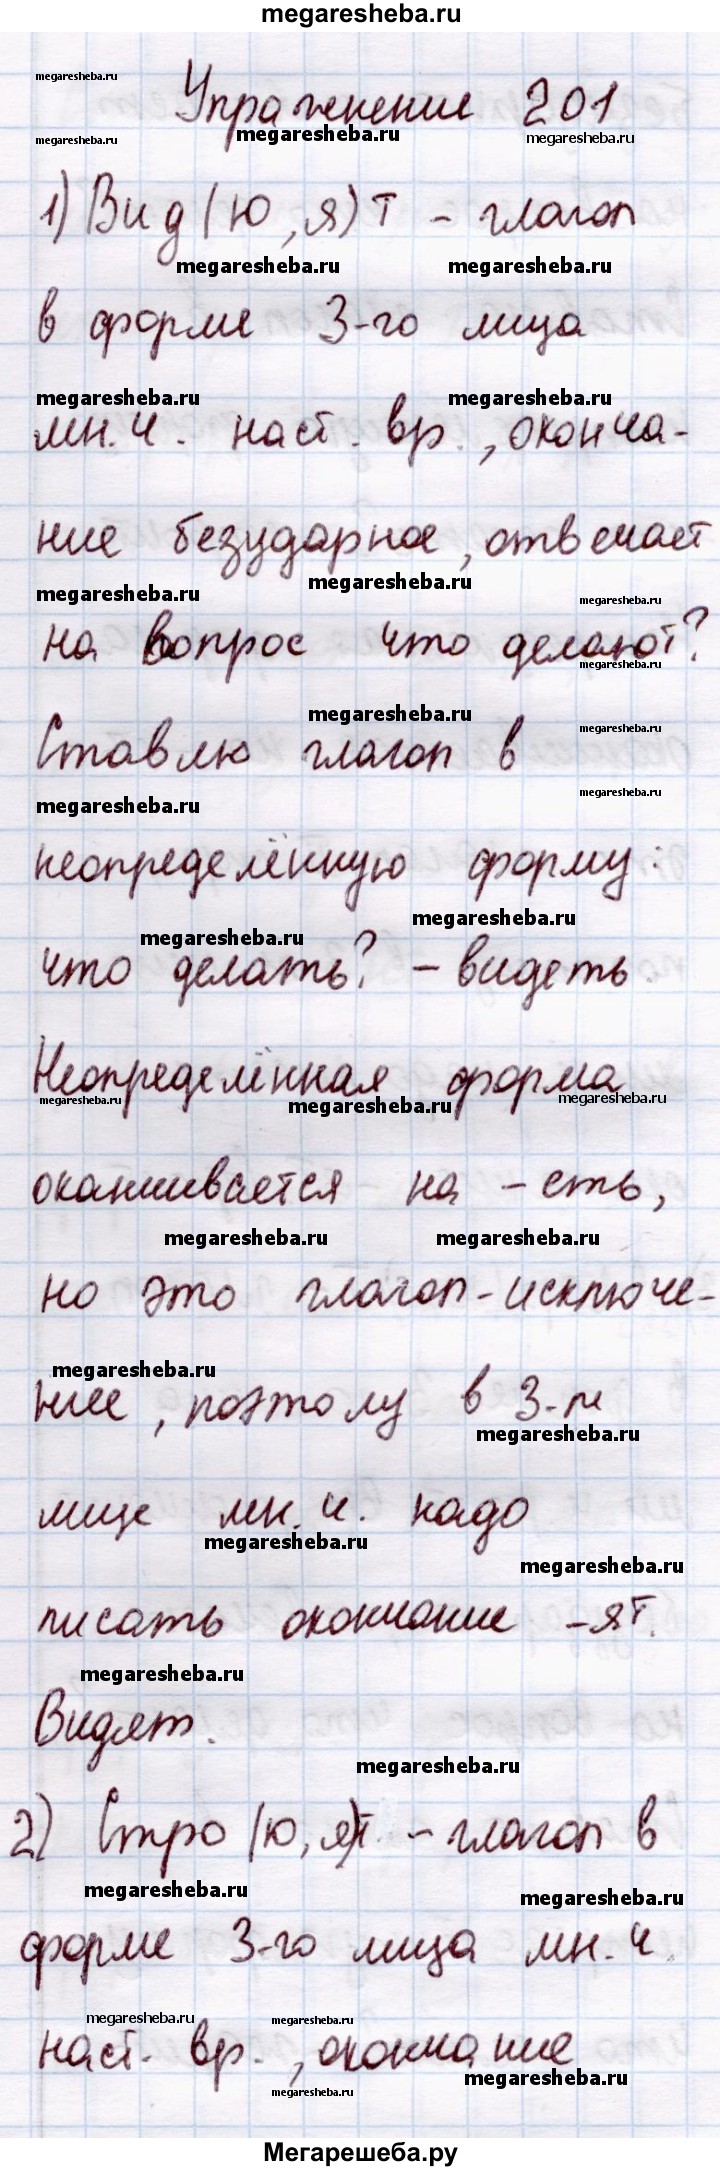 megaresheba.ru
megaresheba.ru
Упражнение 201
megaresheba.ru megaresheba.ru megaresheba.ru
1) Вид(ю,я)т - глагол
megaresheba.ru megaresheba.ru
в форме 3-го лица
megaresheba.ru megaresheba.ru
мн.ч. наст. вр., оконча-
ние безударное, отвечает
megaresheba.ru megaresheba.ru megaresheba.ru
на вопрос что делают?
megaresheba.ru
megaresheba.ru megaresheba.ru
Ставлю глагол в
megaresheba.ru megaresheba.ru
неопределённую форму:
megaresheba.ru
megaresheba.ru
что делать? - видеть.
Неопределённая форма
megaresheba.ru megaresheba.ru megaresheba.ru
оканчивается на -еть,
megaresheba.ru megaresheba.ru
но это глагол-исключе-
megaresheba.ru
ние, поэтому в 3-м
megaresheba.ru
лице мн.ч. надо
megaresheba.ru megaresheba.ru
писать окончание -ят.
megaresheba.ru
Видят.
megaresheba.ru
2) Стро(ю,я)т - глагол в
megaresheba.ru megaresheba.ru
форме 3-го лица мн.ч.
megaresheba.ru megaresheba.ru
наст. вр., окончание
megaresheba.ru megaresheba.ru
Мегарешеба.ру